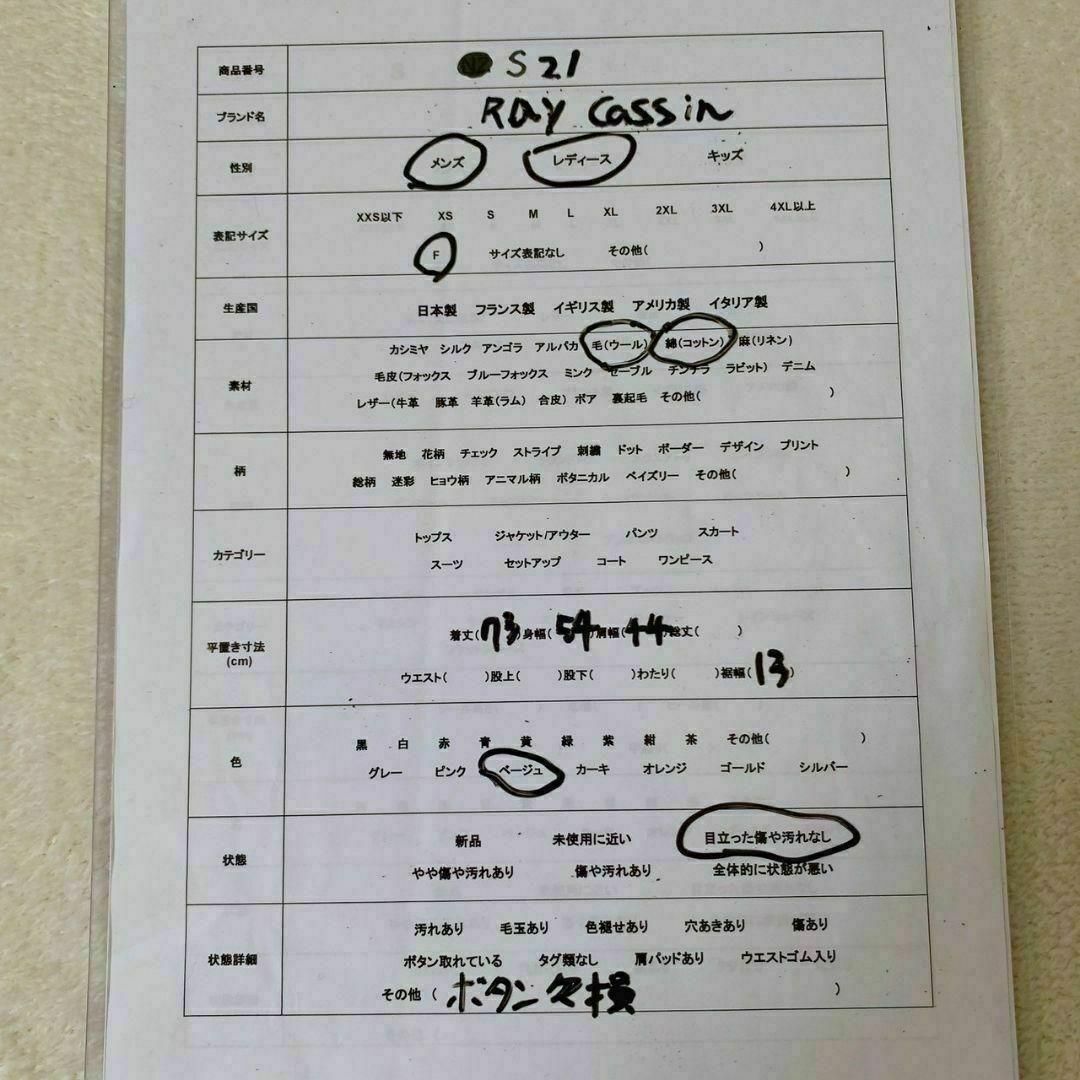 商品番号 S21
ブランド名 RAY Cassin
性別 メンズ レディース キッズ
XXS以下 XS S M L XL 2XL 3XL 4XL以上
表記サイズ
F サイズ表記なし その他( )
生産国 日本製 フランス製 イギリス製 アメリカ製 イタリア製
カシミヤ シルク アンゴラ アルパカ 毛(ウール) 綿(コットン) 麻(リネン)
素材 毛皮(フォックス ブルーフォックス ミンク セーブル チンチラ ラビット) デニム
レザー(牛革 豚革 羊革(ラム) 合皮) ボア 裏起毛 その他( )
無地 花柄 チェック ストライプ 刺繍 ドット ボーダー デザイン プリント
柄
総柄 迷彩 ヒョウ柄 アニマル柄 ボタニカル ペイズリー その他( )
トップス ジャケット/アウター パンツ スカート
カテゴリー
スーツ セットアップ コート ワンピース
着丈(73)身幅(54)肩幅(44)総丈( )
平置き寸法
(cm)
ウエスト( )股上( )股下( )わたり( )裾幅(13)
黒 白 赤 青 黄 緑 紫 紺 茶 その他( )
色
グレー ピンク ベージュ カーキ オレンジ ゴールド シルバー
新品 未使用に近い 目立った傷や汚れなし
状態
やや傷や汚れあり 傷や汚れあり 全体的に状態が悪い
汚れあり 毛玉あり 色褪せあり 穴あきあり 傷あり
状態詳細 ボタン取れている タグ類なし 肩パッドあり ウエストゴム入り
その他 (ボタン欠損 )